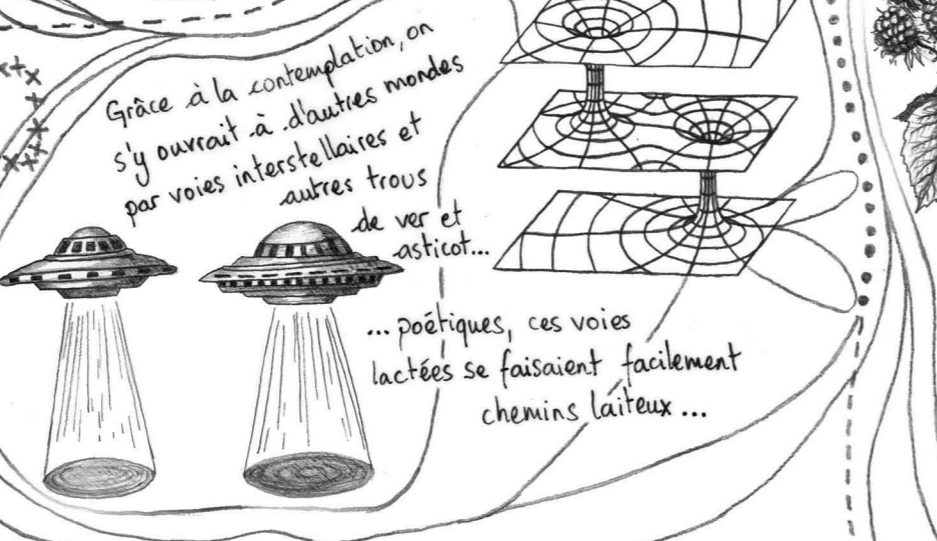 Grâce à la contemplation, on
s'y ouvrait à d'autres mondes
par voies interstellaires et
autres trous
de ver et
asticot...
... poétiques, ces voies
lactées se faisaient facilement
chemins laiteux ...